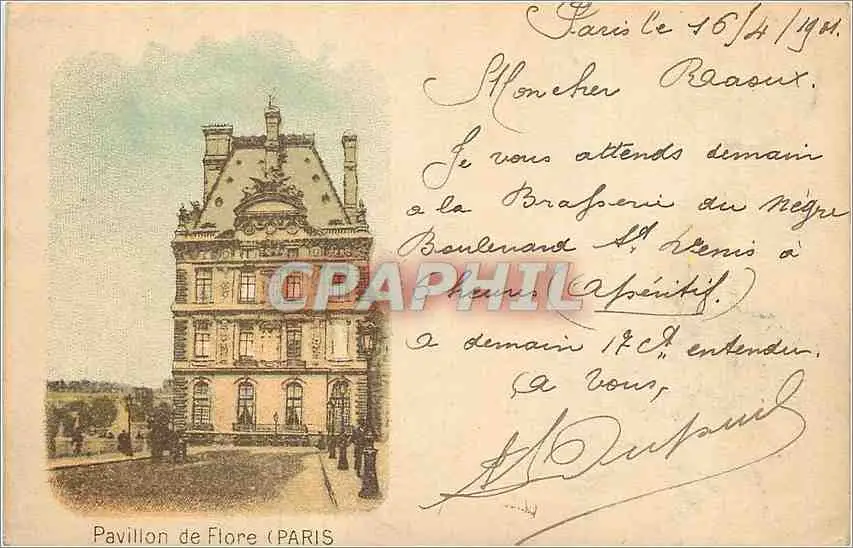 Paris le 16/4/1901.
Mon cher Raoux.
Je vous attends demain
a la Brasserie du Nègre
Boulevard St Denis à
heures (Apéritif.)
a demain 17 Ct entendu.
a Vous,
CPAPHIL
Pavillon de Flore (PARIS